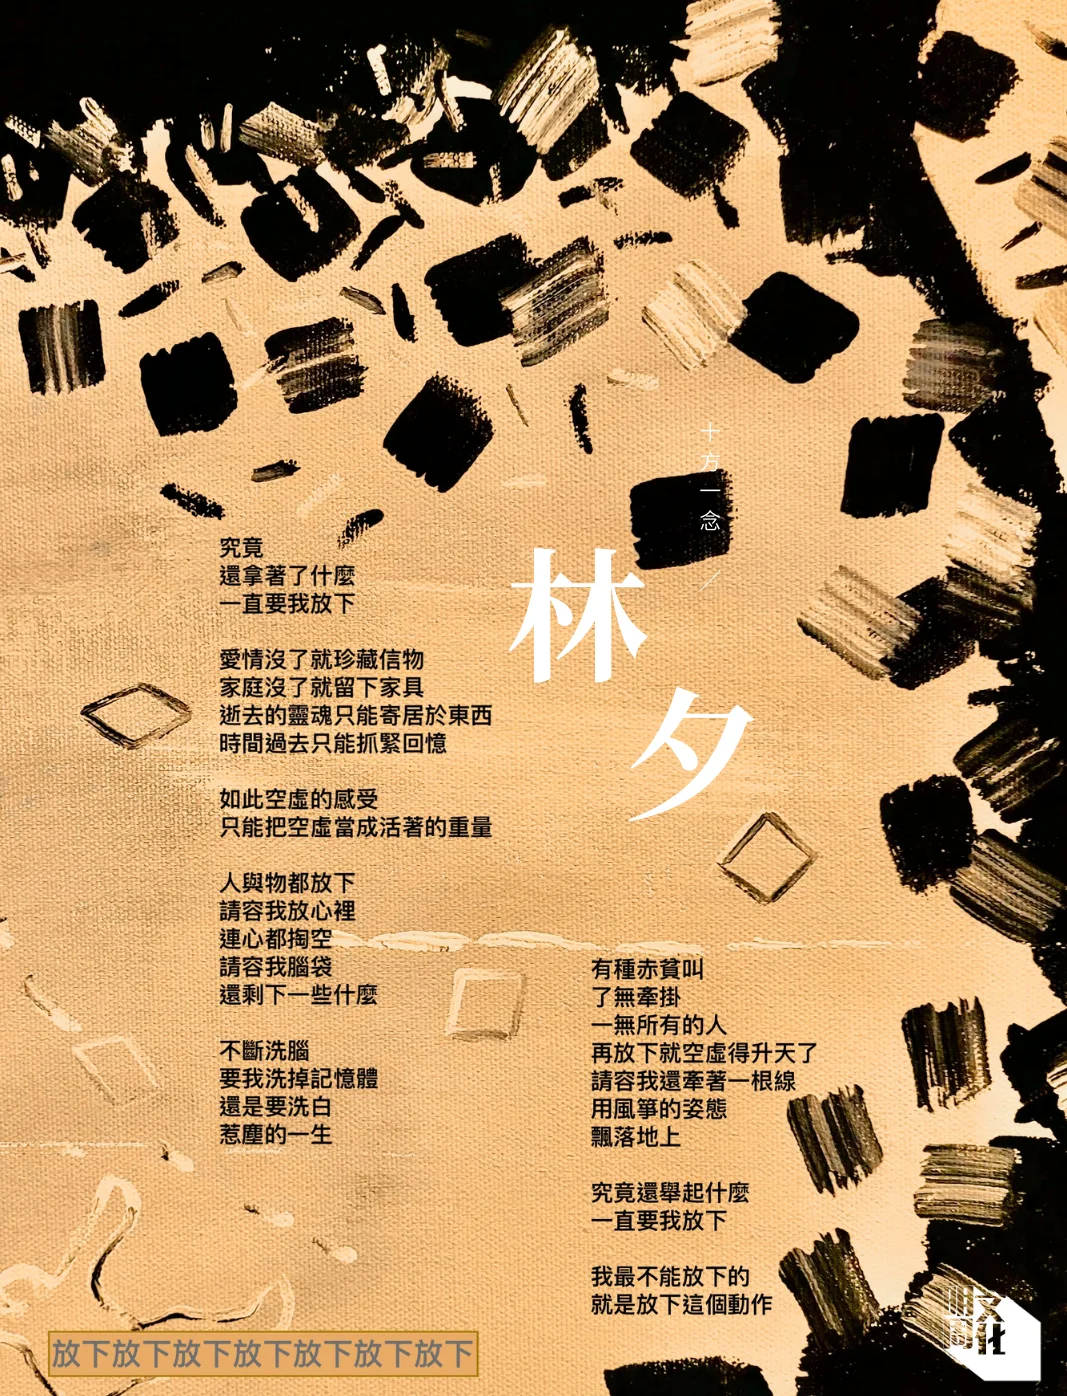 十方一念／
林夕
究竟
還拿著了什麼
一直要我放下
愛情沒了就珍藏信物
家庭沒了就留下家具
逝去的靈魂只能寄居於東西
時間過去只能抓緊回憶
如此空虛的感受
只能把空虛當成活著的重量
人與物都放下
請容我放心裡
連心都掏空
請容我腦袋
還剩下一些什麼
不斷洗腦
要我洗掉記憶體
還是要洗白
惹塵的一生
有種赤貧叫
了無牽掛
一無所有的人
再放下就空虛得升天了
請容我還牽著一根線
用風箏的姿態
飄落地上
究竟還舉起什麼
一直要我放下
我最不能放下的
就是放下這個動作
放下放下放下放下放下放下放下
明周文化